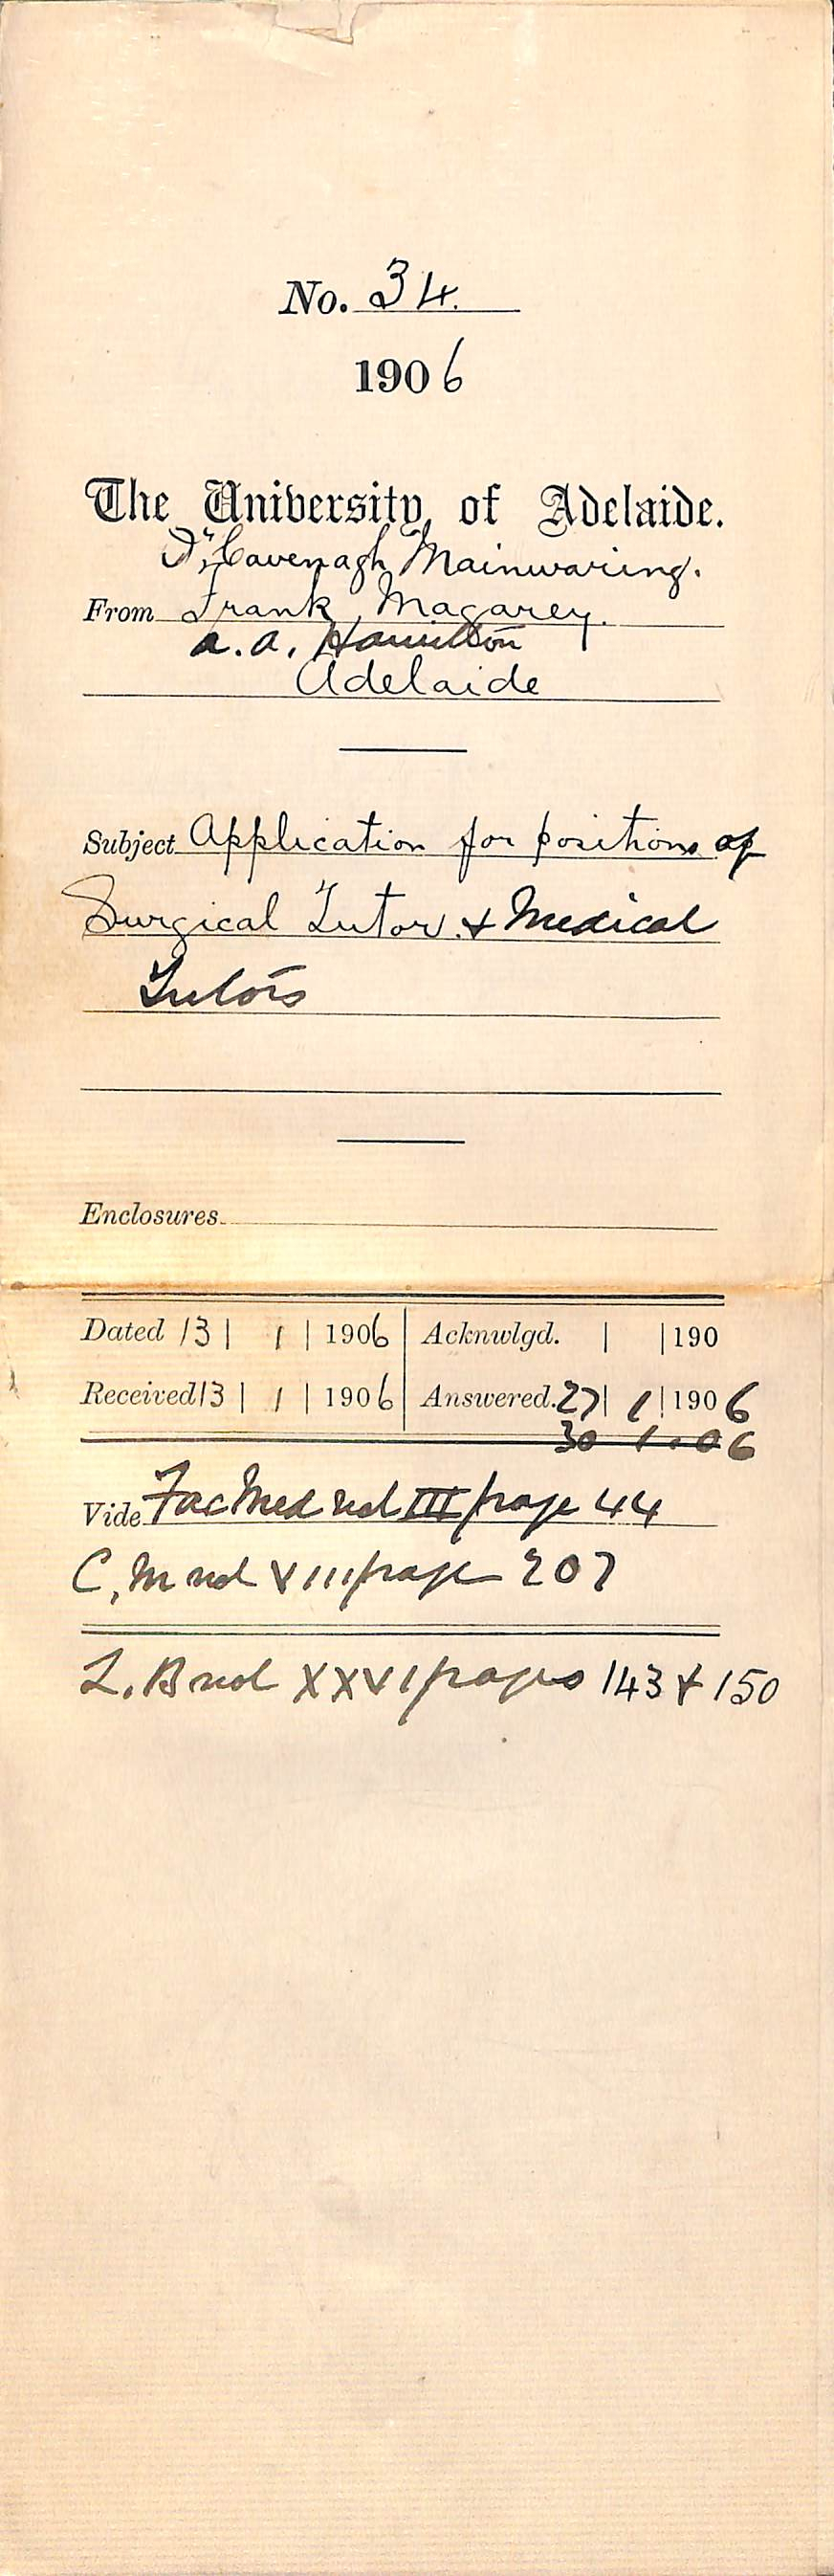 No. 34.
1906
The University of Adelaide.
Cavenagh Mainwaring.
From Frank Magarey.
A. A. Hamilton
Adelaide
Subject Application for positions of
Surgical Tutor & Medical
Tutors
Enclosures
Dated 13 | 1 | 1906 | Acknwlgd. | | 190
Received 13 | 1 | 1906 | Answered. 27 | 1 | 1906
30 1.06
Vide Fac Med vol III page 44
C, M vol VIII page 207
L. B vol XXVI pages 143 & 150